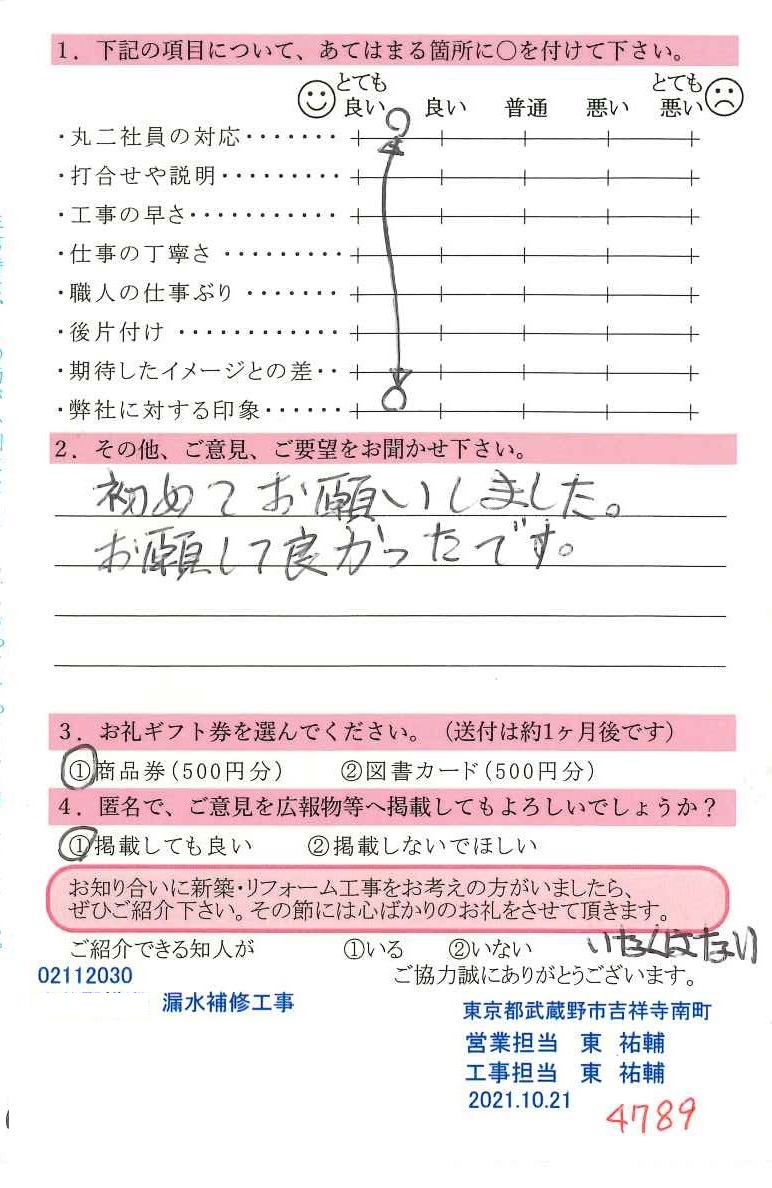 1．下記の項目について、あてはまる箇所に○を付けて下さい。
とても良い 良い 普通 悪い とても悪い
・丸二社員の対応・・・・・・・
・打合せや説明・・・・・・・・・
・工事の早さ・・・・・・・・・・・
・仕事の丁寧さ・・・・・・・・・
・職人の仕事ぶり・・・・・・・
・後片付け・・・・・・・・・・・・
・期待したイメージとの差・・
・弊社に対する印象・・・・・・
2．その他、ご意見、ご要望をお聞かせ下さい。
初めてお願いしました。
お願して良かったです。
3．お礼ギフト券を選んでください。（送付は約1ヶ月後です）
①商品券（500円分） ②図書カード（500円分）
4．匿名で、ご意見を広報物等へ掲載してもよろしいでしょうか？
①掲載しても良い ②掲載しないでほしい
お知り合いに新築・リフォーム工事をお考えの方がいましたら、
ぜひご紹介下さい。その節には心ばかりのお礼をさせて頂きます。
ご紹介できる知人が ①いる ②いない いなくはない
ご協力誠にありがとうございます。
02112030
漏水補修工事
東京都武蔵野市吉祥寺南町
営業担当 東 祐輔
工事担当 東 祐輔
2021.10.21
4789